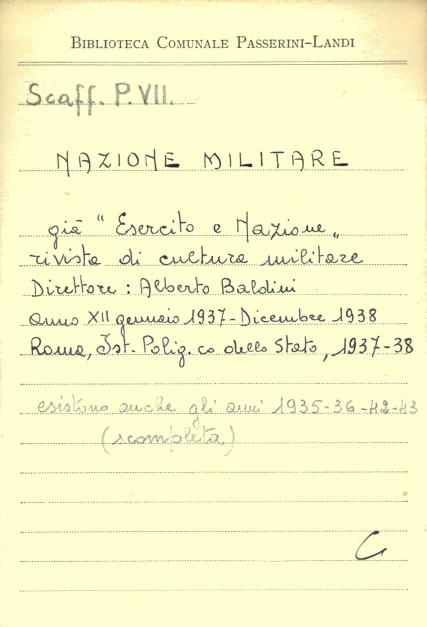 BIBLIOTECA COMUNALE PASSERINI-LANDI
Scaff. P. VII.
NAZIONE MILITARE
già " Esercito e Nazione "
rivista di cultura militare
Direttore : Alberto Baldini
anno XII gennaio 1937-Dicembre 1938
Roma, Ist. Polig.co dello Stato, 1937-38
esistono anche gli anni 1935-36-42-43
(scompleta)
C